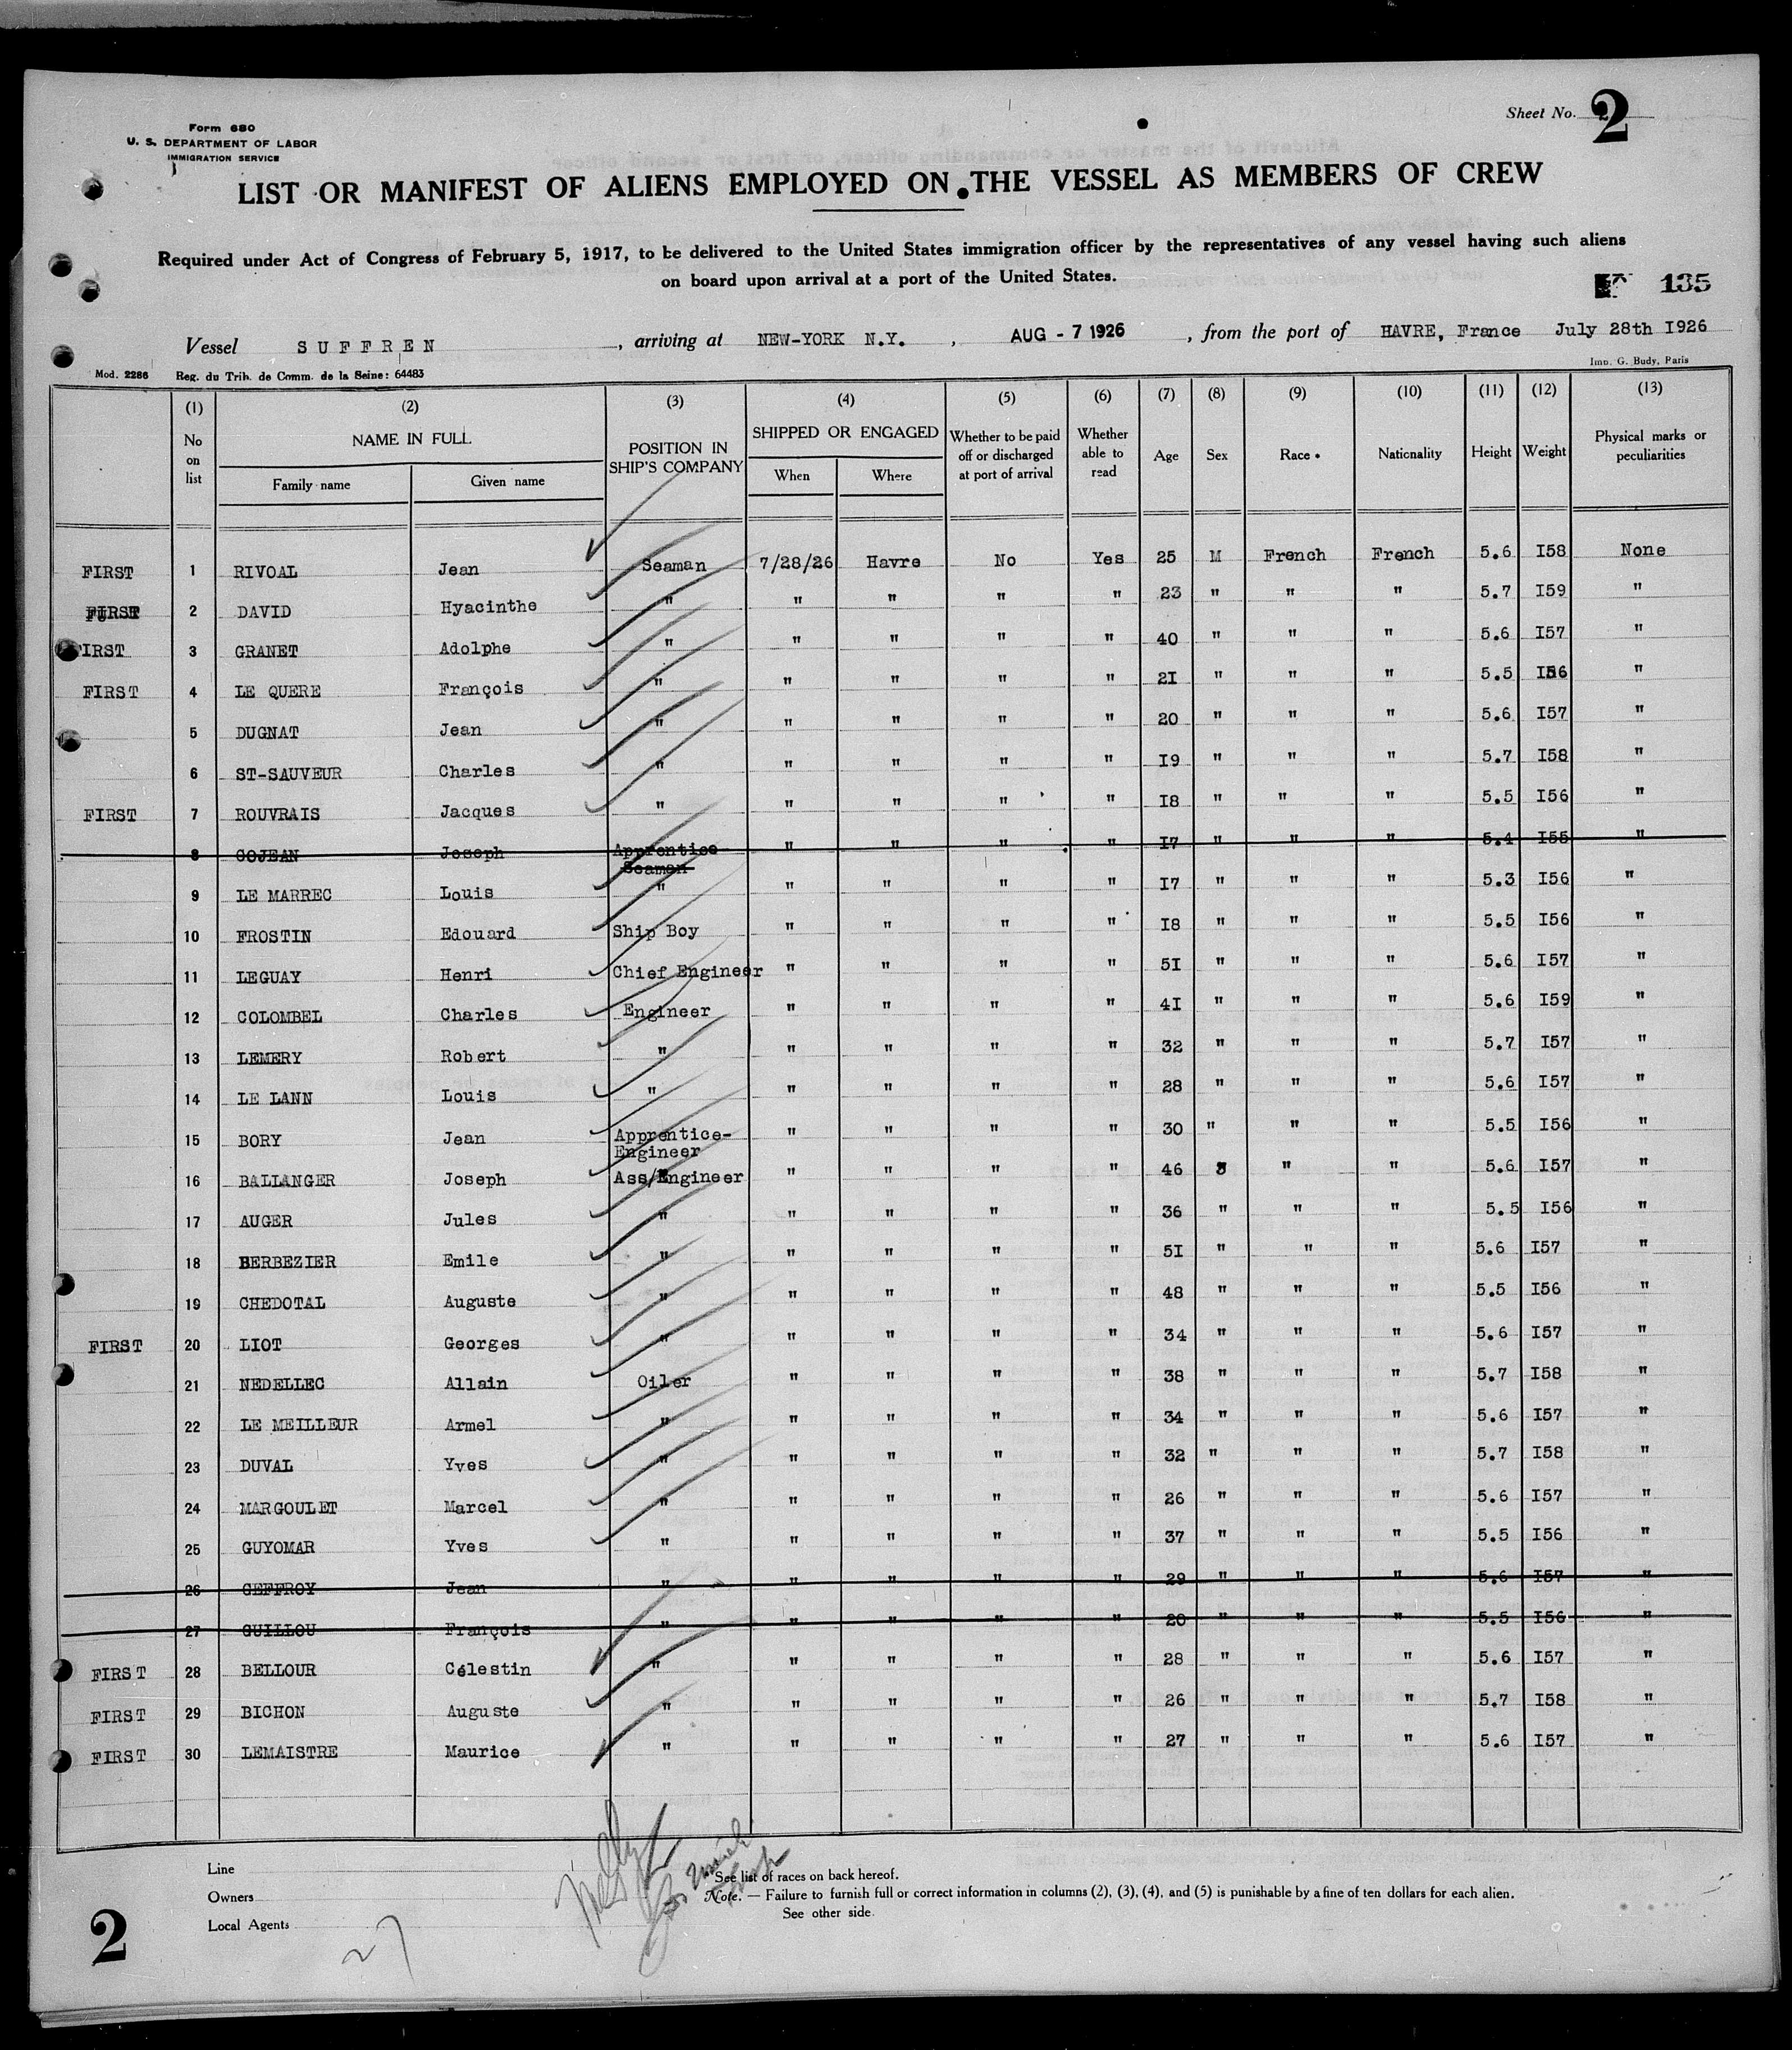 Sheet No. 2
Form 680
U. S. DEPARTMENT OF LABOR
IMMIGRATION SERVICE
LIST OR MANIFEST OF ALIENS EMPLOYED ON THE VESSEL AS MEMBERS OF CREW
Required under Act of Congress of February 5, 1917, to be delivered to the United States immigration officer by the representatives of any vessel having such aliens
on board upon arrival at a port of the United States.
135
Vessel SUFFREN, arriving at NEW-YORK N.Y. , AUG - 7 1926 , from the port of HAVRE, France July 28th I926
Mod. 2286 Reg. du Trib. de Comm. de la Seine: 64483 Imp. G. Budy, Paris
(1) (2) (3) (4) (5) (6) (7) (8) (9) (10) (11) (12) (13)
No on list NAME IN FULL POSITION IN SHIP'S COMPANY SHIPPED OR ENGAGED Whether to be paid off or discharged at port of arrival Whether able to read Age Sex Race Nationality Height Weight Physical marks or peculiarities
Family name Given name When Where
FIRST 1 RIVOAL Jean Seaman 7/28/26 Havre No Yes 25 M French French 5.6 I58 None
FIRST 2 DAVID Hyacinthe " " " " " 23 " " " 5.7 I59 "
FIRST 3 GRANET Adolphe " " " " " 40 " " " 5.6 I57 "
FIRST 4 LE QUERE François " " " " " 2I " " " 5.5 I56 "
5 DUGNAT Jean " " " " " 20 " " " 5.6 I57 "
6 ST-SAUVEUR Charles " " " " " I9 " " " 5.7 I58 "
FIRST 7 ROUVRAIS Jacques " " " " " I8 " " " 5.5 I56 "
8 GOJEAN Joseph Apprentice Seaman " " " " I7 " " " 5.4 I55 "
9 LE MARREC Louis " " " " " I7 " " " 5.3 I56 "
10 FROSTIN Edouard Ship Boy " " " " I8 " " " 5.5 I56 "
11 LEGUAY Henri Chief Engineer " " " " 5I " " " 5.6 I57 "
12 COLOMBEL Charles Engineer " " " " 4I " " " 5.6 I59 "
13 LEMERY Robert " " " " " 32 " " " 5.7 I57 "
14 LE LANN Louis " " " " " 28 " " " 5.6 I57 "
15 BORY Jean Apprentice-Engineer " " " " 30 " " " 5.5 I56 "
16 BALLANGER Joseph Ass/Engineer " " " " 46 " " " 5.6 I57 "
17 AUGER Jules " " " " " 36 " " " 5.5 I56 "
18 BERBEZIER Emile " " " " " 5I " " " 5.6 I57 "
19 CHEDOTAL Auguste " " " " " 48 " " " 5.5 I56 "
FIRST 20 LIOT Georges " " " " " 34 " " " 5.6 I57 "
21 NEDELLEC Allain Oiler " " " " 38 " " " 5.7 I58 "
22 LE MEILLEUR Armel " " " " " 34 " " " 5.6 I57 "
23 DUVAL Yves " " " " " 32 " " " 5.7 I58 "
24 MARGOULET Marcel " " " " " 26 " " " 5.6 I57 "
25 GUYOMAR Yves " " " " " 37 " " " 5.5 I56 "
26 GEFFROY Jean " " " " " 29 " " " 5.6 I57 "
27 GUILLOU François " " " " " 20 " " " 5.5 I56 "
FIRST 28 BELLOUR Célestin " " " " " 28 " " " 5.6 I57 "
FIRST 29 BICHON Auguste " " " " " 26 " " " 5.7 I58 "
FIRST 30 LEMAISTRE Maurice " " " " " 27 " " " 5.6 I57 "
Line
Owners
Local Agents
See list of races on back hereof.
Note. — Failure to furnish full or correct information in columns (2), (3), (4), and (5) is punishable by a fine of ten dollars for each alien.
See other side.
2
27